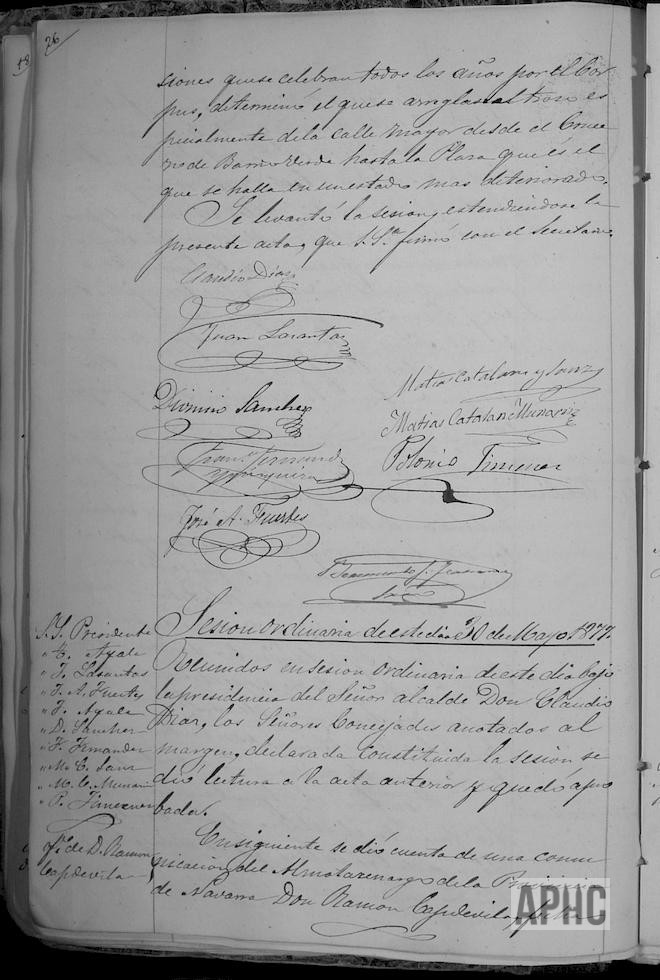 26
18
ciones que se celebran todos los años por el Cor
pus, determinó el que se arreglase el trozo es
pecialmente de la calle mayor desde el Cruce
ro de Barrio Verde hasta la Plaza que és el
que se halla en un estado mas deteriorado.
Se levantó la sesion, estendiendose la
presente acta, que S. Sª firmó con el Secretario.
Claudio Diaz
Juan Lasanta
Matias Catalan y Sanz
Dionisio Sanchez
Matias Catalan Munarriz
Polonio Jimenez
José A. Fuertes
Sesion ordinaria de este dia 30 de Mayo 1877.
S.S. Presidente
" Ayala
" J. Lasantas
" J. A. Fuertes
" J. Ayala
" D. Sanchez
" F. Fernandez
" M. C. Sanz
" M. C. Munarri
" P. Jimenez
Reunidos en sesion ordinaria de este dia bajo
la presidencia del Señor alcalde Don Claudio
Diaz, los Señores Concejales anotados al
margen, declarada constituida la sesion se
dió lectura a la acta anterior y quedó apro
bada.
de D. Ramon
Capdevila
Enseguiente se dió cuenta de una comu
nicacion del Almotazenazgo de la Provincia
de Navarra Don Ramon Capdevila,
APHC